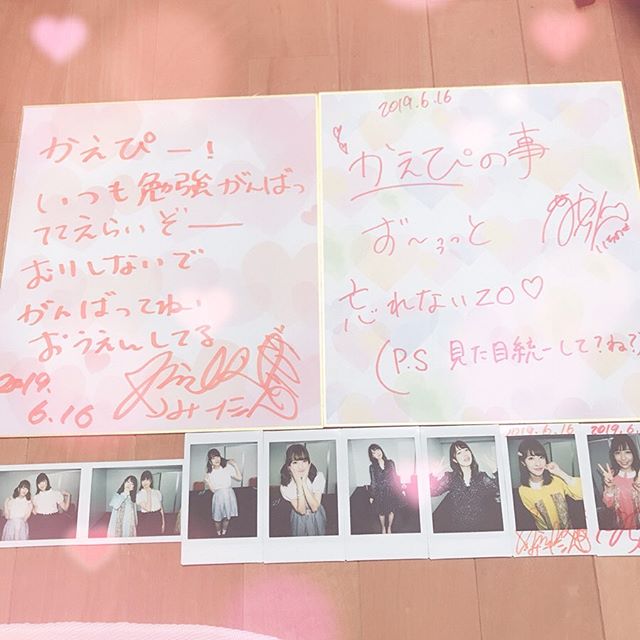 かえぴー!
いつも勉強がんばっ
ててえらいぞー
むりしないで
がんばってね、
おうえんしてる
2019.
6.16
2019.6.16
かえぴの事
ず〜っと
忘れないZO♡
(P.S 見た目統一して?ね?)
2019.6.16
2019.6.